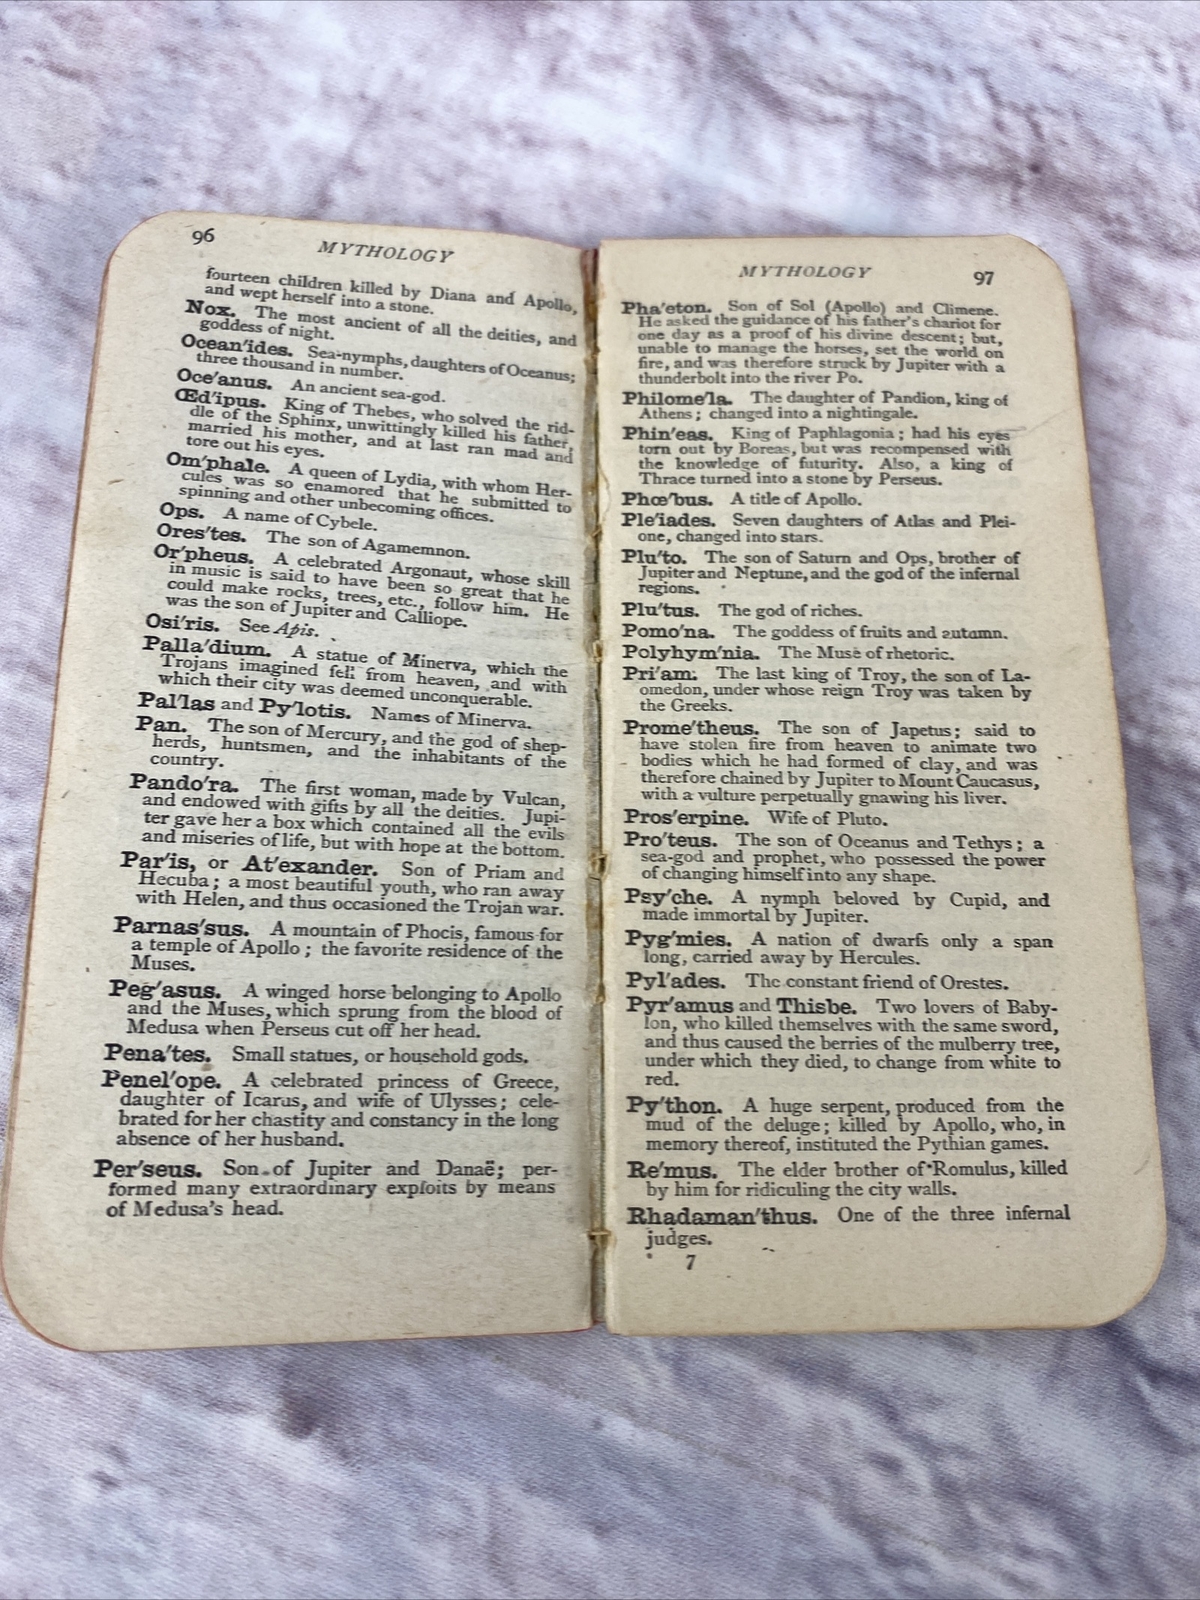 96
MYTHOLOGY
fourteen children killed by Diana and Apollo,
and wept herself into a stone.
Nox. The most ancient of all the deities, and
goddess of night.
Ocean'ides. Sea-nymphs, daughters of Oceanus;
three thousand in number.
Oce'anus. An ancient sea-god.
Œd'ipus. King of Thebes, who solved the rid-
dle of the Sphinx, unwittingly killed his father,
married his mother, and at last ran mad and
tore out his eyes.
Om'phale. A queen of Lydia, with whom Her-
cules was so enamored that he submitted to
spinning and other unbecoming offices.
Ops. A name of Cybele.
Ores'tes. The son of Agamemnon.
Or'pheus. A celebrated Argonaut, whose skill
in music is said to have been so great that he
could make rocks, trees, etc., follow him. He
was the son of Jupiter and Calliope.
Osi'ris. See Apis.
Palla'dium. A statue of Minerva, which the
Trojans imagined fell from heaven, and with
which their city was deemed unconquerable.
Pal'las and Py'lotis. Names of Minerva.
Pan. The son of Mercury, and the god of shep-
herds, huntsmen, and the inhabitants of the
country.
Pando'ra. The first woman, made by Vulcan,
and endowed with gifts by all the deities. Jupi-
ter gave her a box which contained all the evils
and miseries of life, but with hope at the bottom.
Par'is, or At'exander. Son of Priam and
Hecuba; a most beautiful youth, who ran away
with Helen, and thus occasioned the Trojan war.
Parnas'sus. A mountain of Phocis, famous for
a temple of Apollo; the favorite residence of the
Muses.
Peg'asus. A winged horse belonging to Apollo
and the Muses, which sprung from the blood of
Medusa when Perseus cut off her head.
Pena'tes. Small statues, or household gods.
Penel'ope. A celebrated princess of Greece,
daughter of Icarus, and wife of Ulysses; cele-
brated for her chastity and constancy in the long
absence of her husband.
Per'seus. Son of Jupiter and Danaë; per-
formed many extraordinary exploits by means
of Medusa's head.
MYTHOLOGY
97
Pha'eton. Son of Sol (Apollo) and Climene.
He asked the guidance of his father's chariot for
one day as a proof of his divine descent; but,
unable to manage the horses, set the world on
fire, and was therefore struck by Jupiter with a
thunderbolt into the river Po.
Philome'la. The daughter of Pandion, king of
Athens; changed into a nightingale.
Phin'eas. King of Paphlagonia; had his eyes
torn out by Boreas, but was recompensed with
the knowledge of futurity. Also, a king of
Thrace turned into a stone by Perseus.
Phœ'bus. A title of Apollo.
Ple'iades. Seven daughters of Atlas and Plei-
one, changed into stars.
Plu'to. The son of Saturn and Ops, brother of
Jupiter and Neptune, and the god of the infernal
regions.
Plu'tus. The god of riches.
Pomo'na. The goddess of fruits and autumn.
Polyhym'nia. The Muse of rhetoric.
Pri'am. The last king of Troy, the son of La-
omedon, under whose reign Troy was taken by
the Greeks.
Prome'theus. The son of Japetus; said to
have stolen fire from heaven to animate two
bodies which he had formed of clay, and was
therefore chained by Jupiter to Mount Caucasus,
with a vulture perpetually gnawing his liver.
Pros'erpine. Wife of Pluto.
Pro'teus. The son of Oceanus and Tethys; a
sea-god and prophet, who possessed the power
of changing himself into any shape.
Psy'che. A nymph beloved by Cupid, and
made immortal by Jupiter.
Pyg'mies. A nation of dwarfs only a span
long, carried away by Hercules.
Pyl'ades. The constant friend of Orestes.
Pyr'amus and Thisbe. Two lovers of Baby-
lon, who killed themselves with the same sword,
and thus caused the berries of the mulberry tree,
under which they died, to change from white to
red.
Py'thon. A huge serpent, produced from the
mud of the deluge; killed by Apollo, who, in
memory thereof, instituted the Pythian games.
Re'mus. The elder brother of Romulus, killed
by him for ridiculing the city walls.
Rhadaman'thus. One of the three infernal
judges.
7